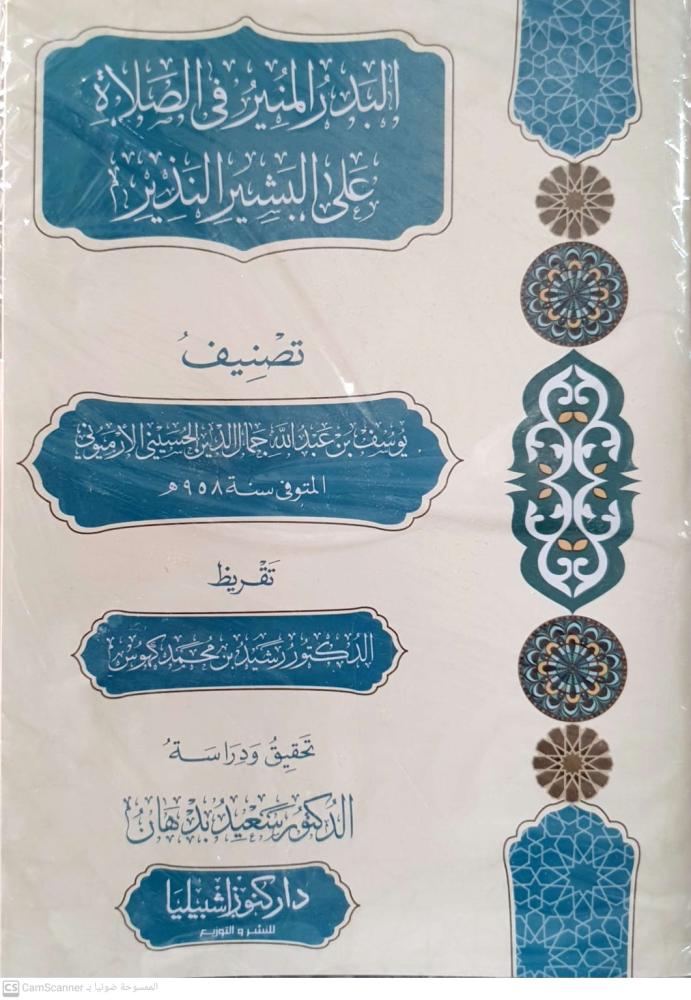 البَدْرُ المُنِيرُ فِي الصَّلَاةِ
عَلَى البَشِيرِ النَّذِيرِ
تَصْنِيفُ
يُوسُفَ بْنِ عَبْدِ اللَّهِ جَمَالِ الدِّينِ الحُسَيْنِيِّ الأرميُوني
المتوفى سنة ٩٥٨هـ
تَقْرِيظ
الدكتور رشيد بن محمد كهوس
تَحْقِيقُ وَدِرَاسَةُ
الدكتور سَعِيد بدهان
دار كنوز إشبيليا
للنشر و التوزيع
CS CamScanner الممسوحة ضوئيا بـ